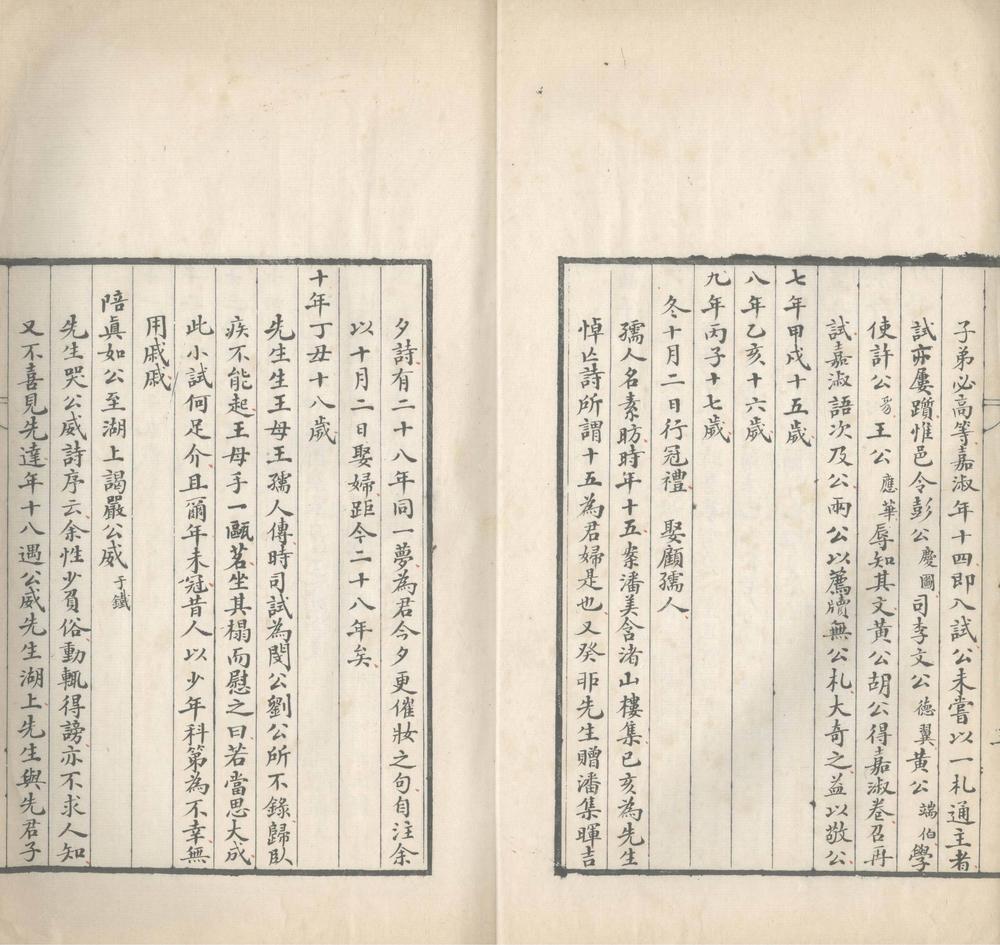 子弟必高等嘉淑年十四即入試公未嘗以一札通主者
試亦屢躓惟邑令彭公慶圖司李文公德翼黃公端伯學
使許公豸王公應華辱知其文黃公胡公得嘉淑卷召再
試嘉淑語次及公兩公以薦牘無公札大奇之益以敬公
七年甲戌十五歲
八年乙亥十六歲
九年丙子十七歲
冬十月二日行冠禮 娶顧孺人
孺人名素昉時年十五案潘美含渚山樓集已亥為先生
悼亾詩所謂十五為君婦是也又癸丣先生贈潘集暉吉
夕詩有二十八年同一夢為君今夕更催妝之句自注余
以十月二日娶婦距今二十八年矣
十年丁丑十八歲
先生生王母王孺人傳時司試為閔公劉公所不錄歸臥
疾不能起王母手一甌茗坐其榻而慰之曰若當思大成
此小試何足介且爾年未冠昔人以少年科第為不幸無
用戚戚
陪真如公至湖上謁嚴公威于鐵
先生哭公威詩序云余性少負俗動輒得謗亦不求人知
又不喜見先達年十八遇公威先生湖上先生與先君子